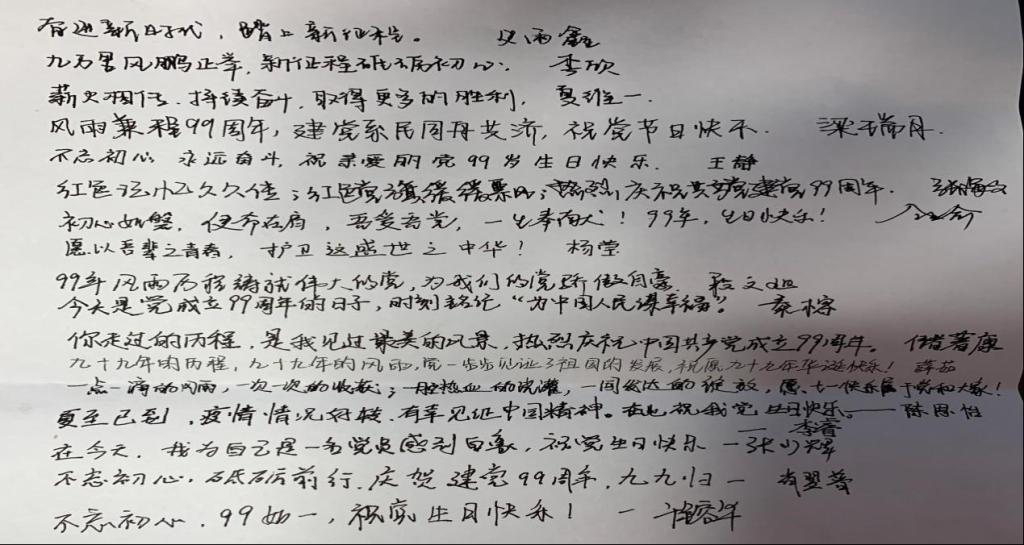 奋进新时代，踏上新征程。 雨鑫
九万里风鹏正举，新征程砥砺初心。 李欣
薪火相传、持续奋斗，取得更多的胜利，夏维一.
风雨兼程99周年，建党系民同舟共济，祝党节日快乐. 梁瑞丹.
不忘初心 永远奋斗，祝亲爱的党99岁生日快乐. 王静
红色记忆久久传；红色党旗缓缓飘扬；热烈庆祝共产党建党99周年.
初心如磐，使命在肩，吾爱吾党，一生奉献！99年，生日快乐！
愿以吾辈之青春，护卫这盛世之中华！ 杨莹
99年风雨历程铸就伟大的党，为我们的党骄傲自豪. 程文
今天是党成立99周年的日子，时刻铭记“为中国人民谋幸福”。 秦榕
你走过的历程，是我见过最美的风景，热烈庆祝中国共产党成立99周年。 储著康
九十九年的历程，九十九年的风雨，党一步步见证了祖国的发展，祝愿九十九年华诞快乐！ 薛茹
一点一滴的风雨，一次一次的收获；一腔热血的浇灌，一间的绽放，愿七一快乐属于党和大家！
夏至已到，疫情情况好转，有幸见证中国精神。在此祝我党生日快乐。——陈思怡
一李睿
在今天，我为自己是一名党员感到自豪，祝党生日快乐 一张
不忘初心，砥砺前行，庆贺建党99周年，九九归一 肖翌
不忘初心，99如一，祝党生日快乐！一